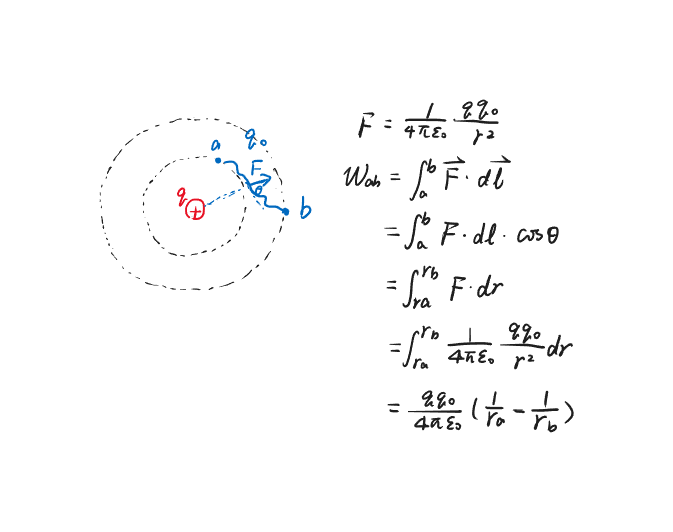 a
q₀
F
θ
q
+
b
F = 1/(4πε₀) qq₀/r²
Wab = ∫ₐᵇ F⃗ · dl⃗
= ∫ₐᵇ F · dl · cosθ
= ∫_ra^rb F · dr
= ∫_ra^rb 1/(4πε₀) qq₀/r² dr
= qq₀/(4πε₀) (1/ra - 1/rb)